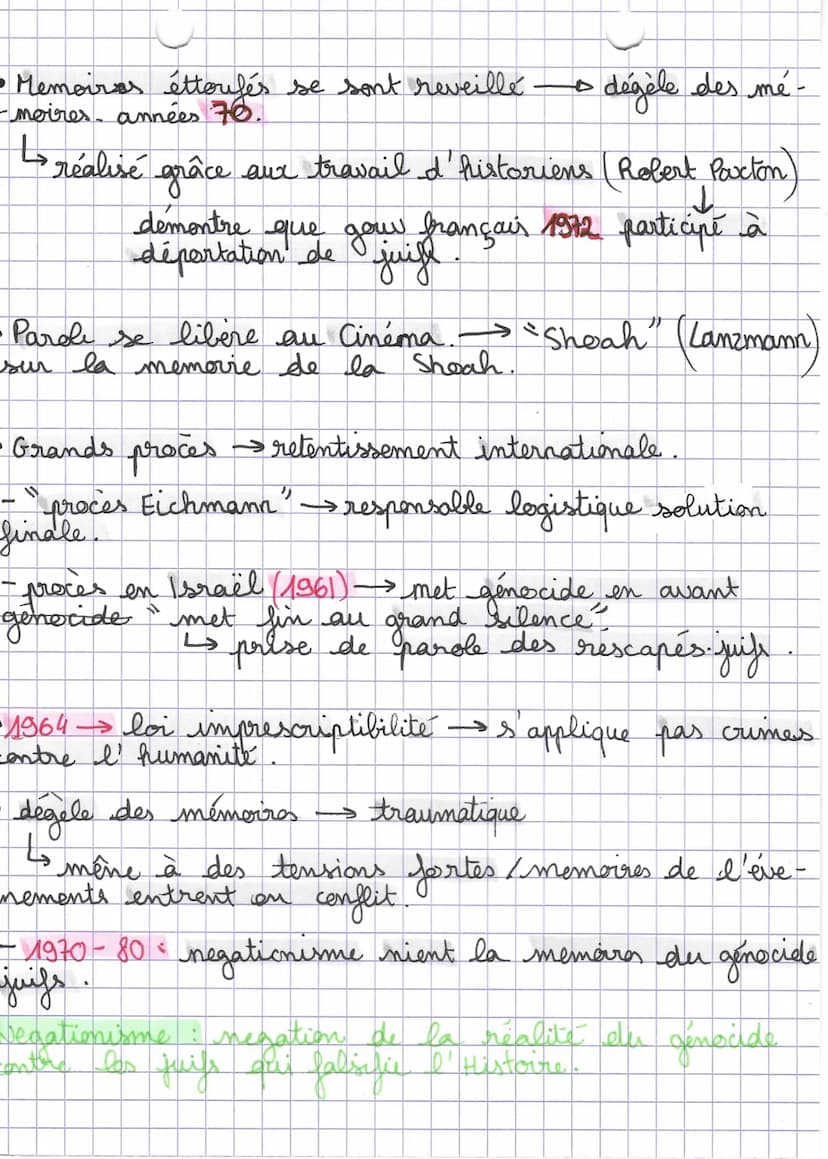 • Memoires éttoufés se sont reveillé → dégèle des mé-
-moires. années 70.
↳ réalisé grâce aux travail d'historiens (Robert Paxton)
↓
démontre que gouv français 1972 participé à
déportation de juifs.
• Parole se libère au Cinéma. → "Shoah" (Lanzmann)
sur la memoire de la Shoah.
• Grands procès → retentissement internationale.
- "procès Eichmann" → responsable logistique solution
finale.
- procès en Israël (1961) → met génocide en avant
génocide "met fin au grand silence".
↳ prise de parole des rescapés juifs.
• 1964 → loi imprescriptibilité → s'applique pas crimes
contre l'humanité.
• dégèle des mémoires → traumatique
↳ mêne à des tensions fortes / memoires de l'éve-
nements entrent en conflit.
- 1970-80 : negationisme nient la memoires du génocide
juifs.
Negationisme : negation de la réalité du génocide
contre les juifs qui falsifie l'Histoire.